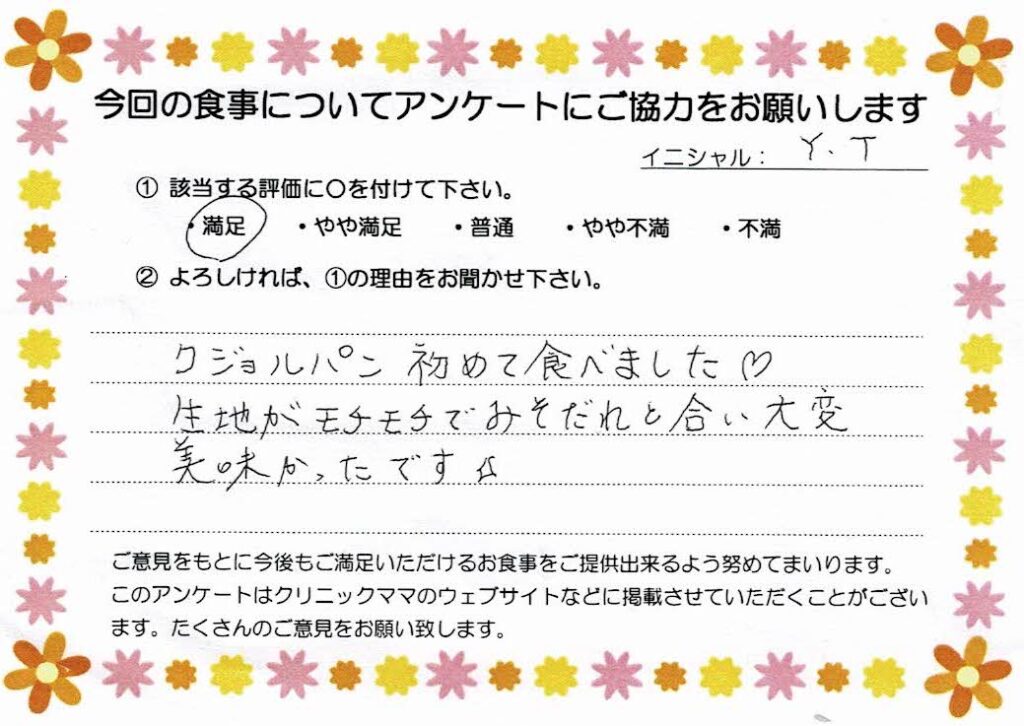 今回の食事についてアンケートにご協力をお願いします
イニシャル： Y.T
① 該当する評価に〇を付けて下さい。
・満足 ・やや満足 ・普通 ・やや不満 ・不満
② よろしければ、①の理由をお聞かせ下さい。
クジョルパン 初めて食べました♡
生地がモチモチでみそだれと合い大変
美味かったです☆
ご意見をもとに今後もご満足いただけるお食事をご提供出来るよう努めてまいります。
このアンケートはクリニックママのウェブサイトなどに掲載させていただくことがござい
ます。たくさんのご意見をお願い致します。